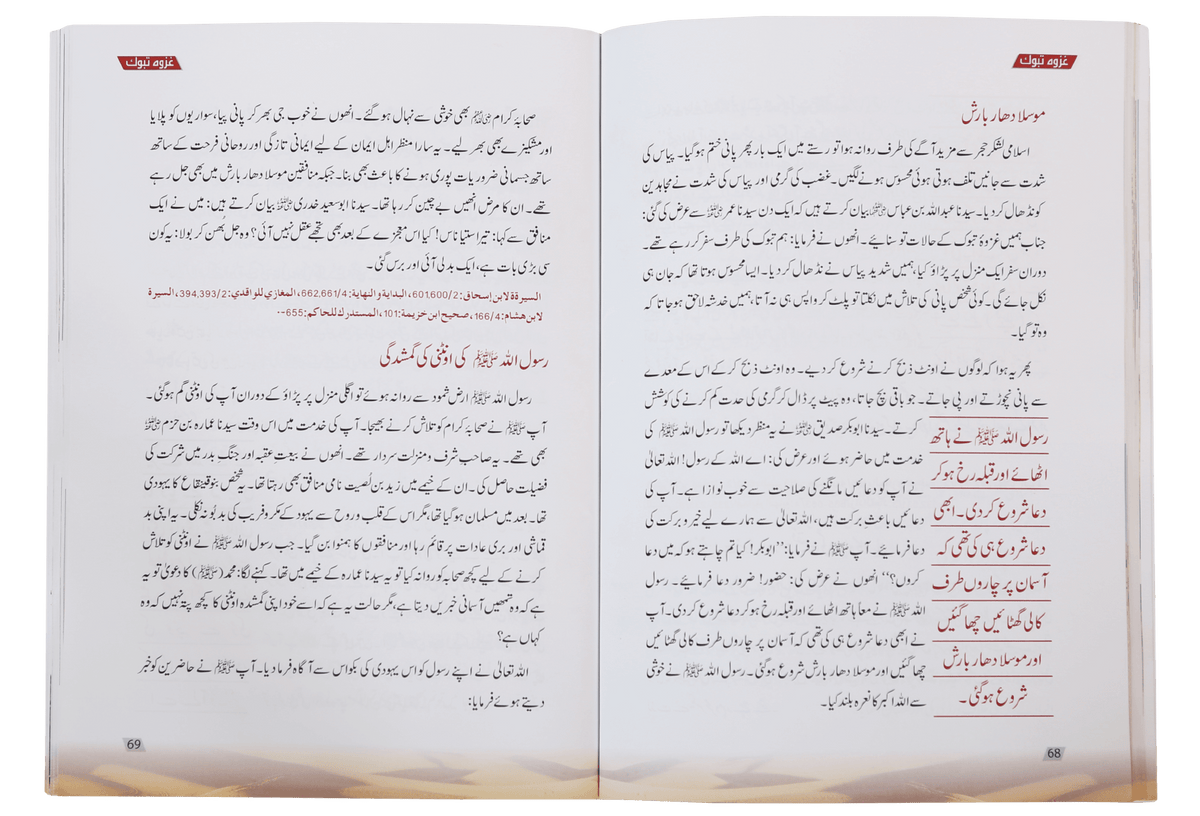 غزوہ تبوک
موسلا دھار بارش
اسلامی لشکر حجر سے مزید آگے کی طرف روانہ ہوا تو رستے میں ایک بار پھر پانی ختم ہوگیا۔ پیاس کی
شدت سے جانیں تلف ہوتی ہوئی محسوس ہونے لگیں۔ غضب کی گرمی اور پیاس کی شدت نے مجاہدین
کو نڈھال کر دیا۔ سیدنا عبداللہ بن عباس رضی اللہ عنہما بیان کرتے ہیں کہ ایک دن سیدنا عمر رضی اللہ عنہ سے عرض کی گئی:
جناب ہمیں غزوۂ تبوک کے حالات تو سنائیے۔ انھوں نے فرمایا: ہم تبوک کی طرف سفر کر رہے تھے۔
دوران سفر ایک منزل پر پڑاؤ کیا، ہمیں شدید پیاس نے نڈھال کر دیا۔ ایسا محسوس ہوتا تھا کہ جان ہی
نکل جائے گی۔ کوئی شخص پانی کی تلاش میں نکلتا تو پلٹ کر واپس ہی نہ آتا، ہمیں خدشہ لاحق ہو جاتا کہ
وہ تو گیا۔
پھر یہ ہوا کہ لوگوں نے اونٹ ذبح کرنے شروع کر دیے۔ وہ اونٹ ذبح کر کے اس کے معدے
سے پانی نچوڑتے اور پی جاتے۔ جو باقی بچ جاتا، وہ پیٹ پر ڈال کر گرمی کی حدت کم کرنے کی کوشش
کرتے۔ سیدنا ابوبکر صدیق رضی اللہ عنہ نے یہ منظر دیکھا تو رسول اللہ ﷺ کی
خدمت میں حاضر ہوئے اور عرض کی: اے اللہ کے رسول! اللہ تعالیٰ
نے آپ کو دعائیں مانگنے کی صلاحیت سے خوب نوازا ہے۔ آپ کی
دعائیں باعث برکت ہیں، اللہ تعالیٰ سے ہمارے لیے خیر و برکت کی
دعا فرمائیے۔ آپ ﷺ نے فرمایا: ’’ابوبکر! کیا تم چاہتے ہو کہ میں دعا
کروں؟‘‘ انھوں نے عرض کی: حضور! ضرور دعا فرمائیے۔ رسول
اللہ ﷺ نے معاً ہاتھ اٹھائے اور قبلہ رخ ہو کر دعا شروع کر دی۔ آپ
نے ابھی دعا شروع ہی کی تھی کہ آسمان پر چاروں طرف کالی گھٹائیں
چھا گئیں اور موسلا دھار بارش شروع ہو گئی۔ رسول اللہ ﷺ نے خوشی
سے اللہ اکبر کا نعرہ بلند کیا۔
رسول اللہ ﷺ نے ہاتھ
اٹھائے اور قبلہ رخ ہو کر
دعا شروع کر دی۔ ابھی
دعا شروع ہی کی تھی کہ
آسمان پر چاروں طرف
کالی گھٹائیں چھا گئیں
اور موسلا دھار بارش
شروع ہو گئی۔
68
غزوہ تبوک
صحابۂ کرام رضی اللہ عنہم بھی خوشی سے نہال ہو گئے۔ انھوں نے خوب جی بھر کر پانی پیا، سواریوں کو پلایا
اور مشکیزے بھی بھر لیے۔ یہ سارا منظر اہل ایمان کے لیے ایمانی تازگی اور روحانی فرحت کے ساتھ
ساتھ جسمانی ضروریات پوری ہونے کا باعث بھی بنا۔ جبکہ منافقین موسلا دھار بارش میں بھی جل رہے
تھے۔ ان کا مرض انھیں بے چین کر رہا تھا۔ سیدنا ابو سعید خدری رضی اللہ عنہ بیان کرتے ہیں: میں نے ایک
منافق سے کہا: تیرا ستیا ناس! کیا اس معجزے کے بعد بھی تجھے عقل نہیں آئی؟ وہ جل بُھن کر بولا: یہ کون
سی بڑی بات ہے، ایک بدلی آئی اور برس گئی۔
السيرة لابن إسحاق: 601,600/2، البداية والنهاية: 662,661/4، المغازي للواقدي: 394,393/2، السيرة
لابن هشام: 166/4، صحيح ابن خزيمة: 101، المستدرك للحاكم: 655-
رسول اللہ ﷺ کی اونٹنی کی گمشدگی
رسول اللہ ﷺ ارض ثمود سے روانہ ہوئے تو اگلی منزل پر پڑاؤ کے دوران آپ کی اونٹنی گم ہو گئی۔
آپ ﷺ نے صحابۂ کرام کو تلاش کرنے بھیجا۔ آپ کی خدمت میں اس وقت سیدنا عمارہ بن حزم رضی اللہ عنہ
بھی تھے۔ یہ صاحب شرف و منزلت سردار تھے۔ انھوں نے بیعتِ عقبہ اور جنگِ بدر میں شرکت کی
فضیلت حاصل کی۔ ان کے خیمے میں زید بن لُصیت نامی منافق بھی رہتا تھا۔ یہ شخص بنو قینقاع کا یہودی
تھا۔ بعد میں مسلمان ہو گیا تھا، مگر اس کے قلب و روح سے یہود کے مکر و فریب کی بد بُو نہ نکلی۔ یہ اپنی بد
قماشی اور بری عادات پر قائم رہا اور منافقوں کا ہمنوا بن گیا۔ جب رسول اللہ ﷺ نے اونٹنی کو تلاش
کرنے کے لیے کچھ صحابہ کو روانہ کیا تو یہ سیدنا عمارہ کے خیمے میں تھا۔ کہنے لگا: محمد (ﷺ) کا دعویٰ تو یہ
ہے کہ وہ تمھیں آسمانی خبریں دیتا ہے، مگر حالت یہ ہے کہ اسے خود اپنی گمشدہ اونٹنی کا کچھ پتہ نہیں کہ وہ
کہاں ہے؟
اللہ تعالیٰ نے اپنے رسول کو اس یہودی کی بکواس سے آگاہ فرما دیا۔ آپ ﷺ نے حاضرین کو خبر
دیتے ہوئے فرمایا:
69